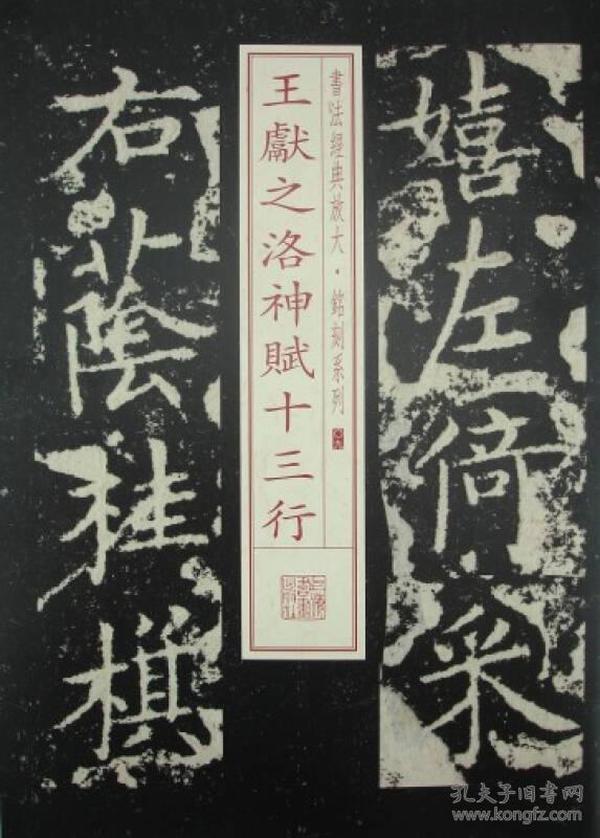 嬉左倚采
書法經典放大·銘刻系列
王獻之洛神賦十三行
右蔭桂旗
上海書畫出版社
孔夫子旧书网
www.kongfz.com